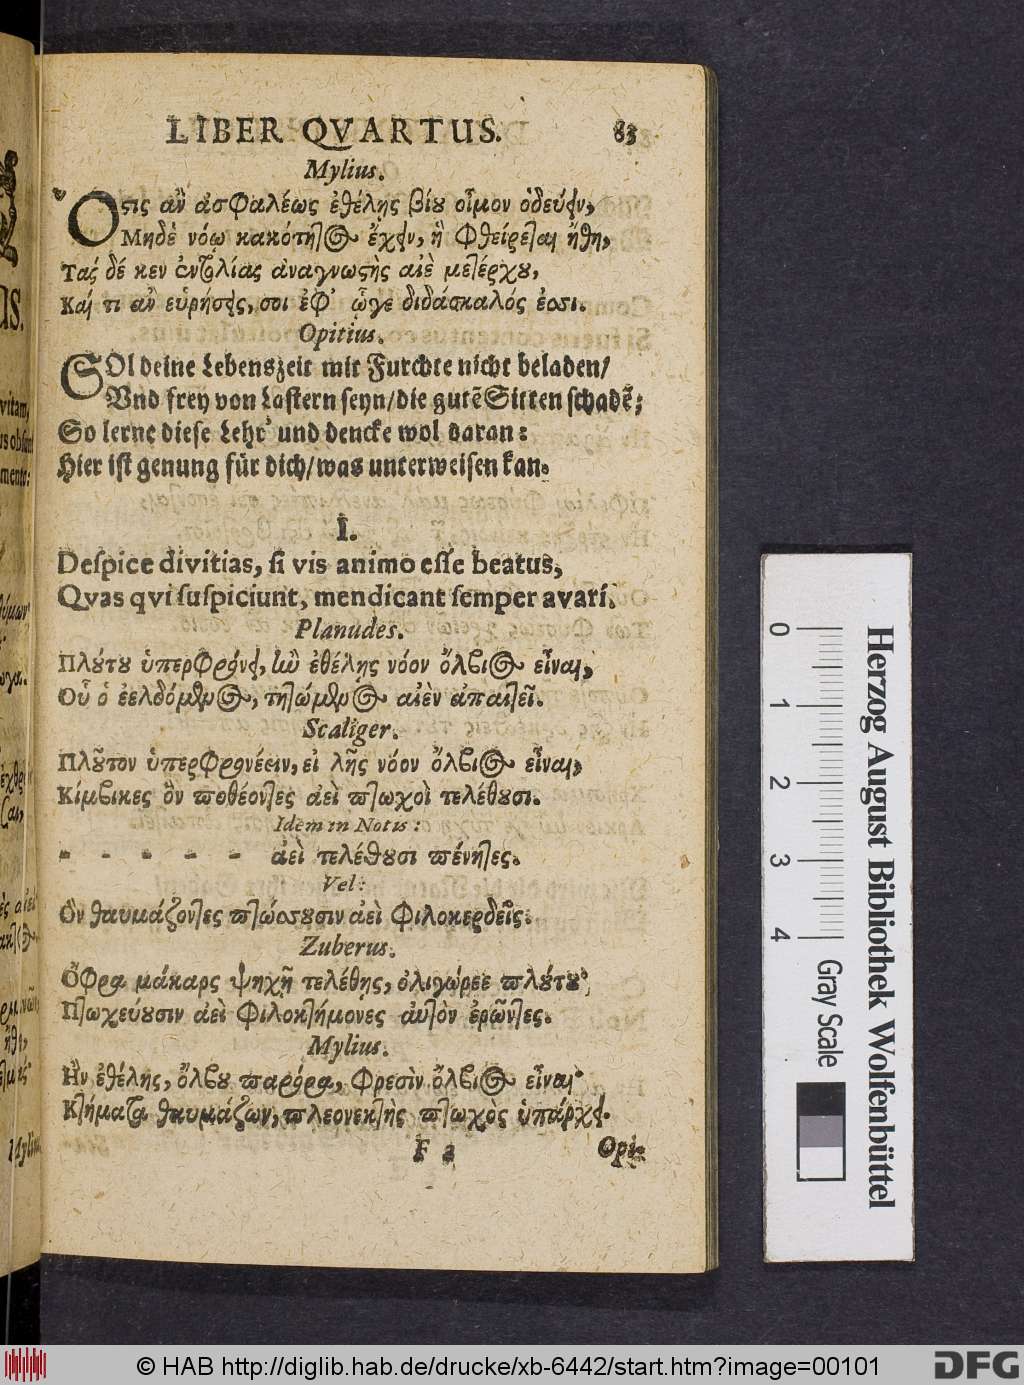 LIBER QVARTUS. 83
Mylius.
Ὅστις ἂν ἀσφαλέως ἐθέλῃς βίου οἶμον ὁδεύειν,
Μηδὲ νόῳ κακότητος ἔχειν, ἣ φθείρεται ἤθη,
Τάς δέ κεν ἐντολίας ἀναγνωστὴς αἰὲ μετέρχου,
Καί τι ἂν εὑρήσεις, σοι ἐφ' ᾧγε διδάσκαλός ἐσσι.
Opitius.
SOl deine Lebenszeit mit Furchte nicht beladen/
Vnd frey von Lastern seyn/die gutẽ Sitten schadẽ;
So lerne diese Lehr' und dencke wol daran:
Hier ist genung für dich/was unterweisen kan.
I.
Deſpice divitias, ſi vis animo eſſe beatus,
Qvas qvi ſuſpiciunt, mendicant ſemper avari.
Planudes.
Πλούτου ὑπερφρόνει, ἢν ἐθέλῃς νόον ὄλβιος εἶναι,
Οὗ ὁ ἐελδόμενος, τητώμενος αἰὲν ἀπαιτεῖ.
Scaliger.
Πλοῦτον ὑπερφρονέειν, εἰ λῇς νόον ὄλβιος εἶναι,
Κίμβικες ὃν ποθέοντες ἀεὶ πτωχοὶ τελέθουσι.
Idem in Notis:
- - - - - ἀεὶ τελέθουσι πένητες.
Vel:
Ὃν θαυμάζοντες πτώσσουσιν ἀεὶ φιλοκερδεῖς.
Zuberus.
Ὄφρα μάκαρς ψηχῇ τελέθῃς, ὀλιγώρεε πλούτου,
Πτωχεύουσιν ἀεὶ φιλοκτήμονες ἀυτὸν ἐρῶντες.
Mylius.
Ἢν ἐθέλῃς, ὄλβου παρόρα, φρεσὶν ὄλβιος εἶναι·
Κτήματα θαυμάζων, πλεονεκτὴς πτωχὸς ὑπάρχει.
F 2 Opi-
0 1 2 3 4
Gray Scale
Herzog August Bibliothek Wolfenbüttel
© HAB http://diglib.hab.de/drucke/xb-6442/start.htm?image=00101
DFG